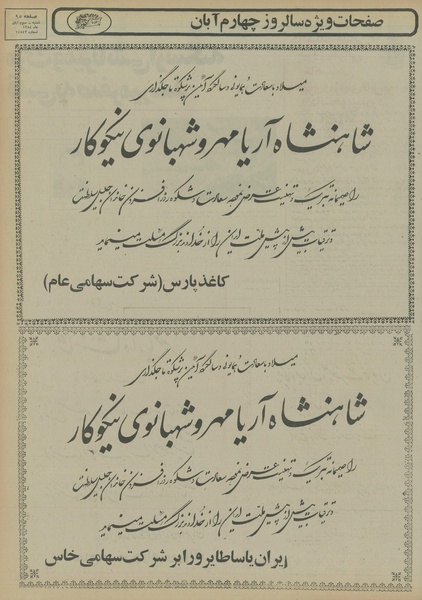 صفحات ویژه سالروز چهارم آبان
صفحه ۹۵
میلاد با سعادت همایونی و سالگرد آئین پرشکوه تاجگذاری
شاهنشاه آریامهر و شهبانوی نیکوکار
را صمیمانه تبریک و تهنیت عرض نموده سعادت و شکوه روزافزون خاندان جلیل سلطنت
و ترقیات بیش از پیش ملت ایران را از خداوند بزرگ مسئلت مینماید
کاغذ پارس (شرکت سهامی عام)
میلاد با سعادت همایونی و سالگرد آئین پرشکوه تاجگذاری
شاهنشاه آریامهر و شهبانوی نیکوکار
را صمیمانه تبریک و تهنیت عرض نموده سعادت و شکوه روزافزون خاندان جلیل سلطنت
و ترقیات بیش از پیش ملت ایران را از خداوند بزرگ مسئلت مینماید
ایران یاساطایر و رابر شرکت سهامی خاص